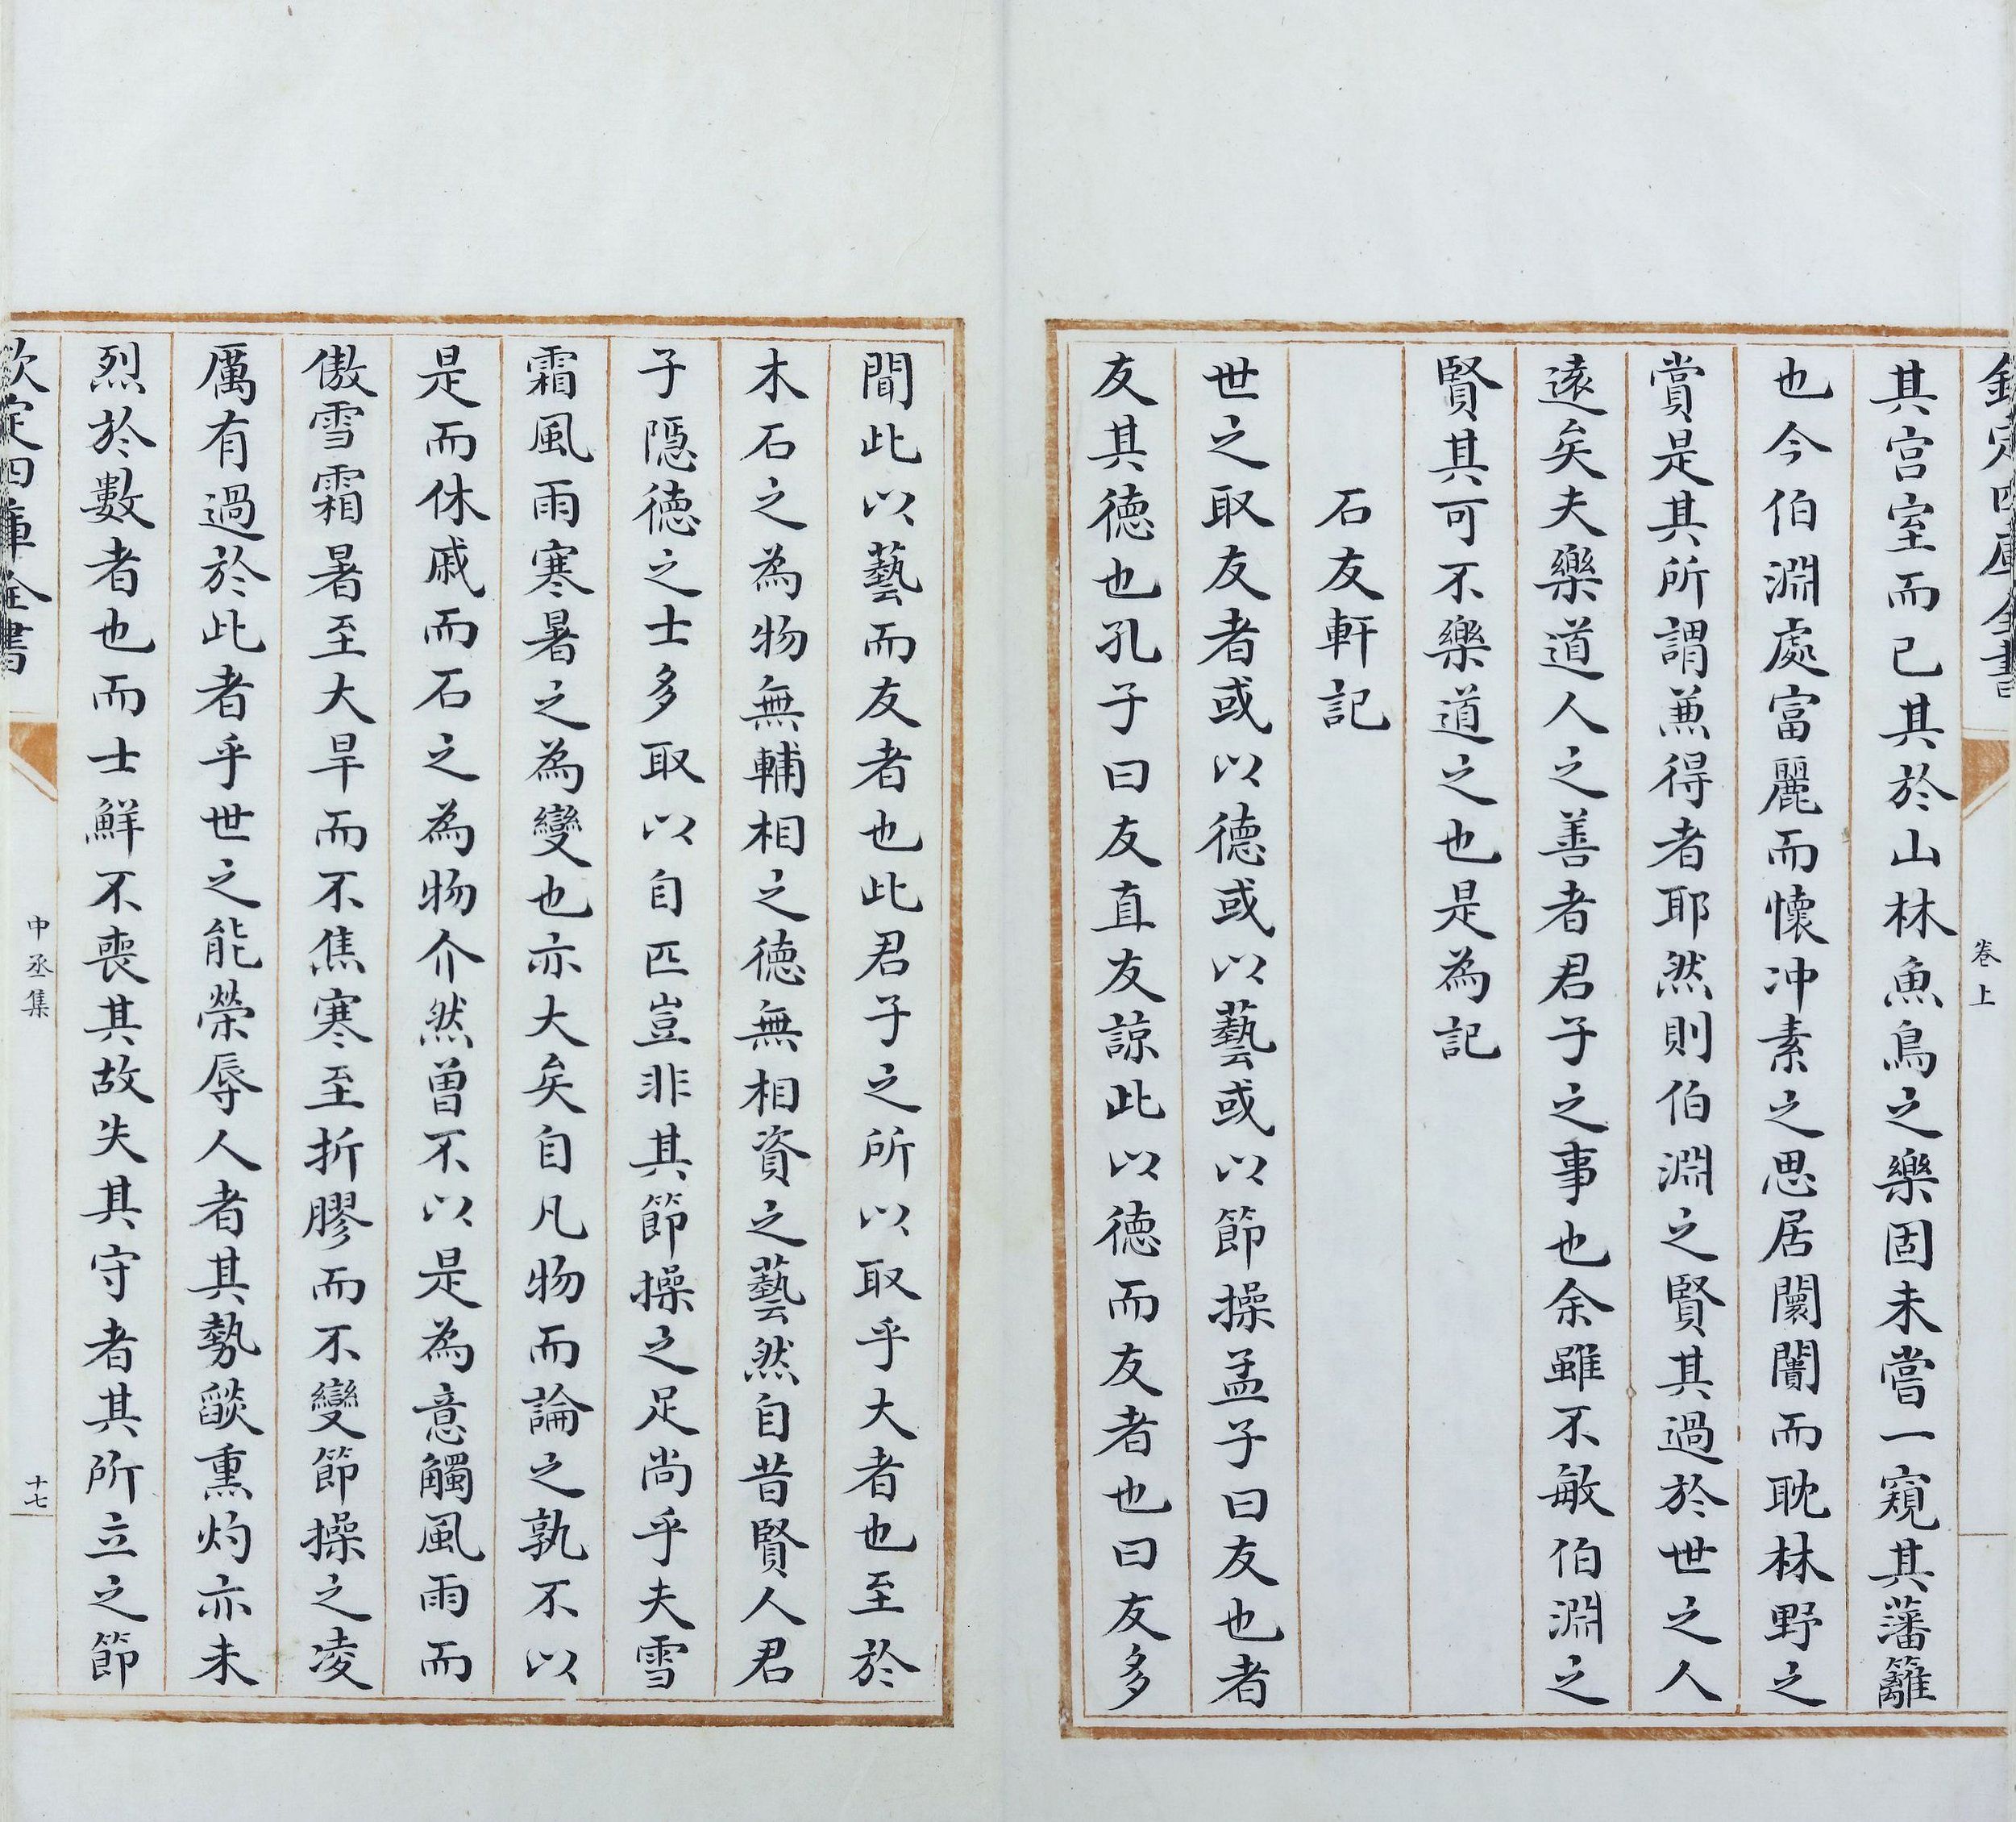 欽定四庫全書
卷上
其宫室而已其於山林魚鳥之樂固未嘗一窺其藩籬
也今伯淵處富麗而懷冲素之思居闤闠而耽林野之
賞是其所謂兼得者耶然則伯淵之賢其過於世之人
遠矣夫樂道人之善者君子之事也余雖不敏伯淵之
賢其可不樂道之也是為記
石友軒記
世之取友者或以德或以藝或以節操孟子曰友也者
友其德也孔子曰友直友諒此以德而友者也曰友多
聞此以藝而友者也此君子之所以取乎大者也至於
木石之為物無輔相之德無相資之藝然自昔賢人君
子隱德之士多取以自匹豈非其節操之足尚乎夫雪
霜風雨寒暑之為變也亦大矣自凡物而論之孰不以
是而休戚而石之為物介然曾不以是為意觸風雨而
傲雪霜暑至大旱而不焦寒至折膠而不變節操之凌
厲有過於此者乎世之能榮辱人者其勢燄熏灼亦未
烈於數者也而士鮮不喪其故失其守者其所立之節
欽定四庫全書
中丞集
十七